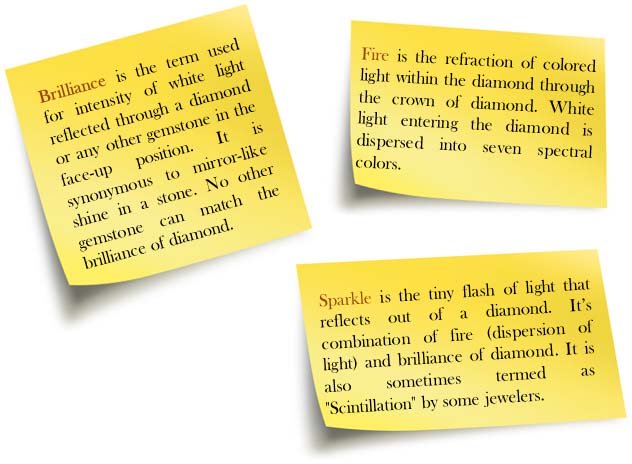 Brilliance is the term used
for intensity of white light
reflected through a diamond
or any other gemstone in the
face-up position. It is
synonymous to mirror-like
shine in a stone. No other
gemstone can match the
brilliance of diamond.
Fire is the refraction of colored
light within the diamond through
the crown of diamond. White
light entering the diamond is
dispersed into seven spectral
colors.
Sparkle is the tiny flash of light that
reflects out of a diamond. It's
combination of fire (dispersion of
light) and brilliance of diamond. It is
also sometimes termed as
"Scintillation" by some jewelers.